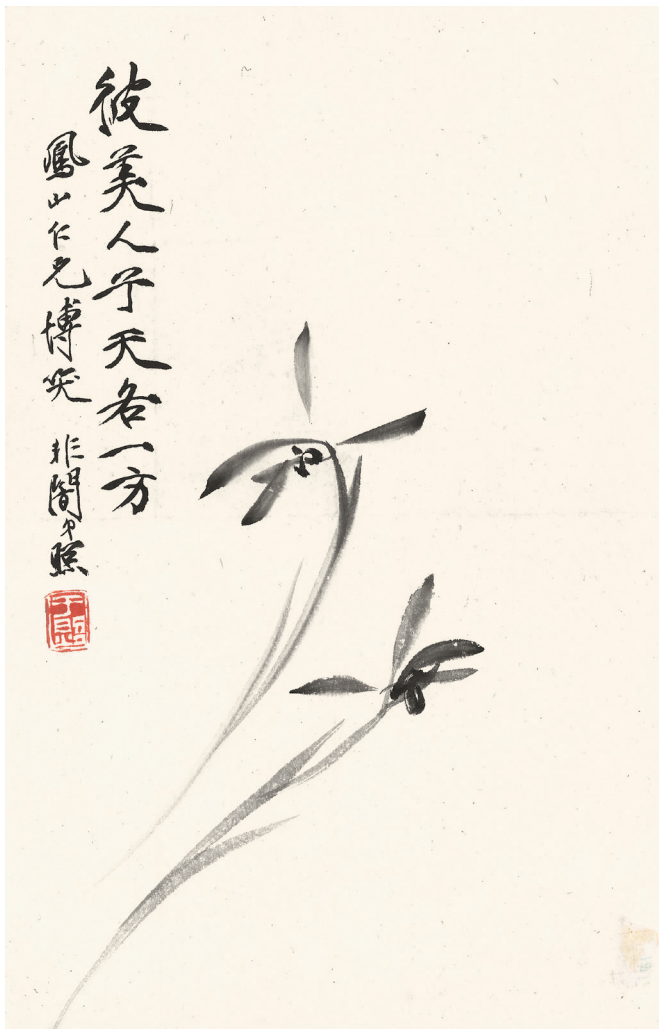 彼美人兮天各一方
鳳山仁兄博笑 非闇于照
于照